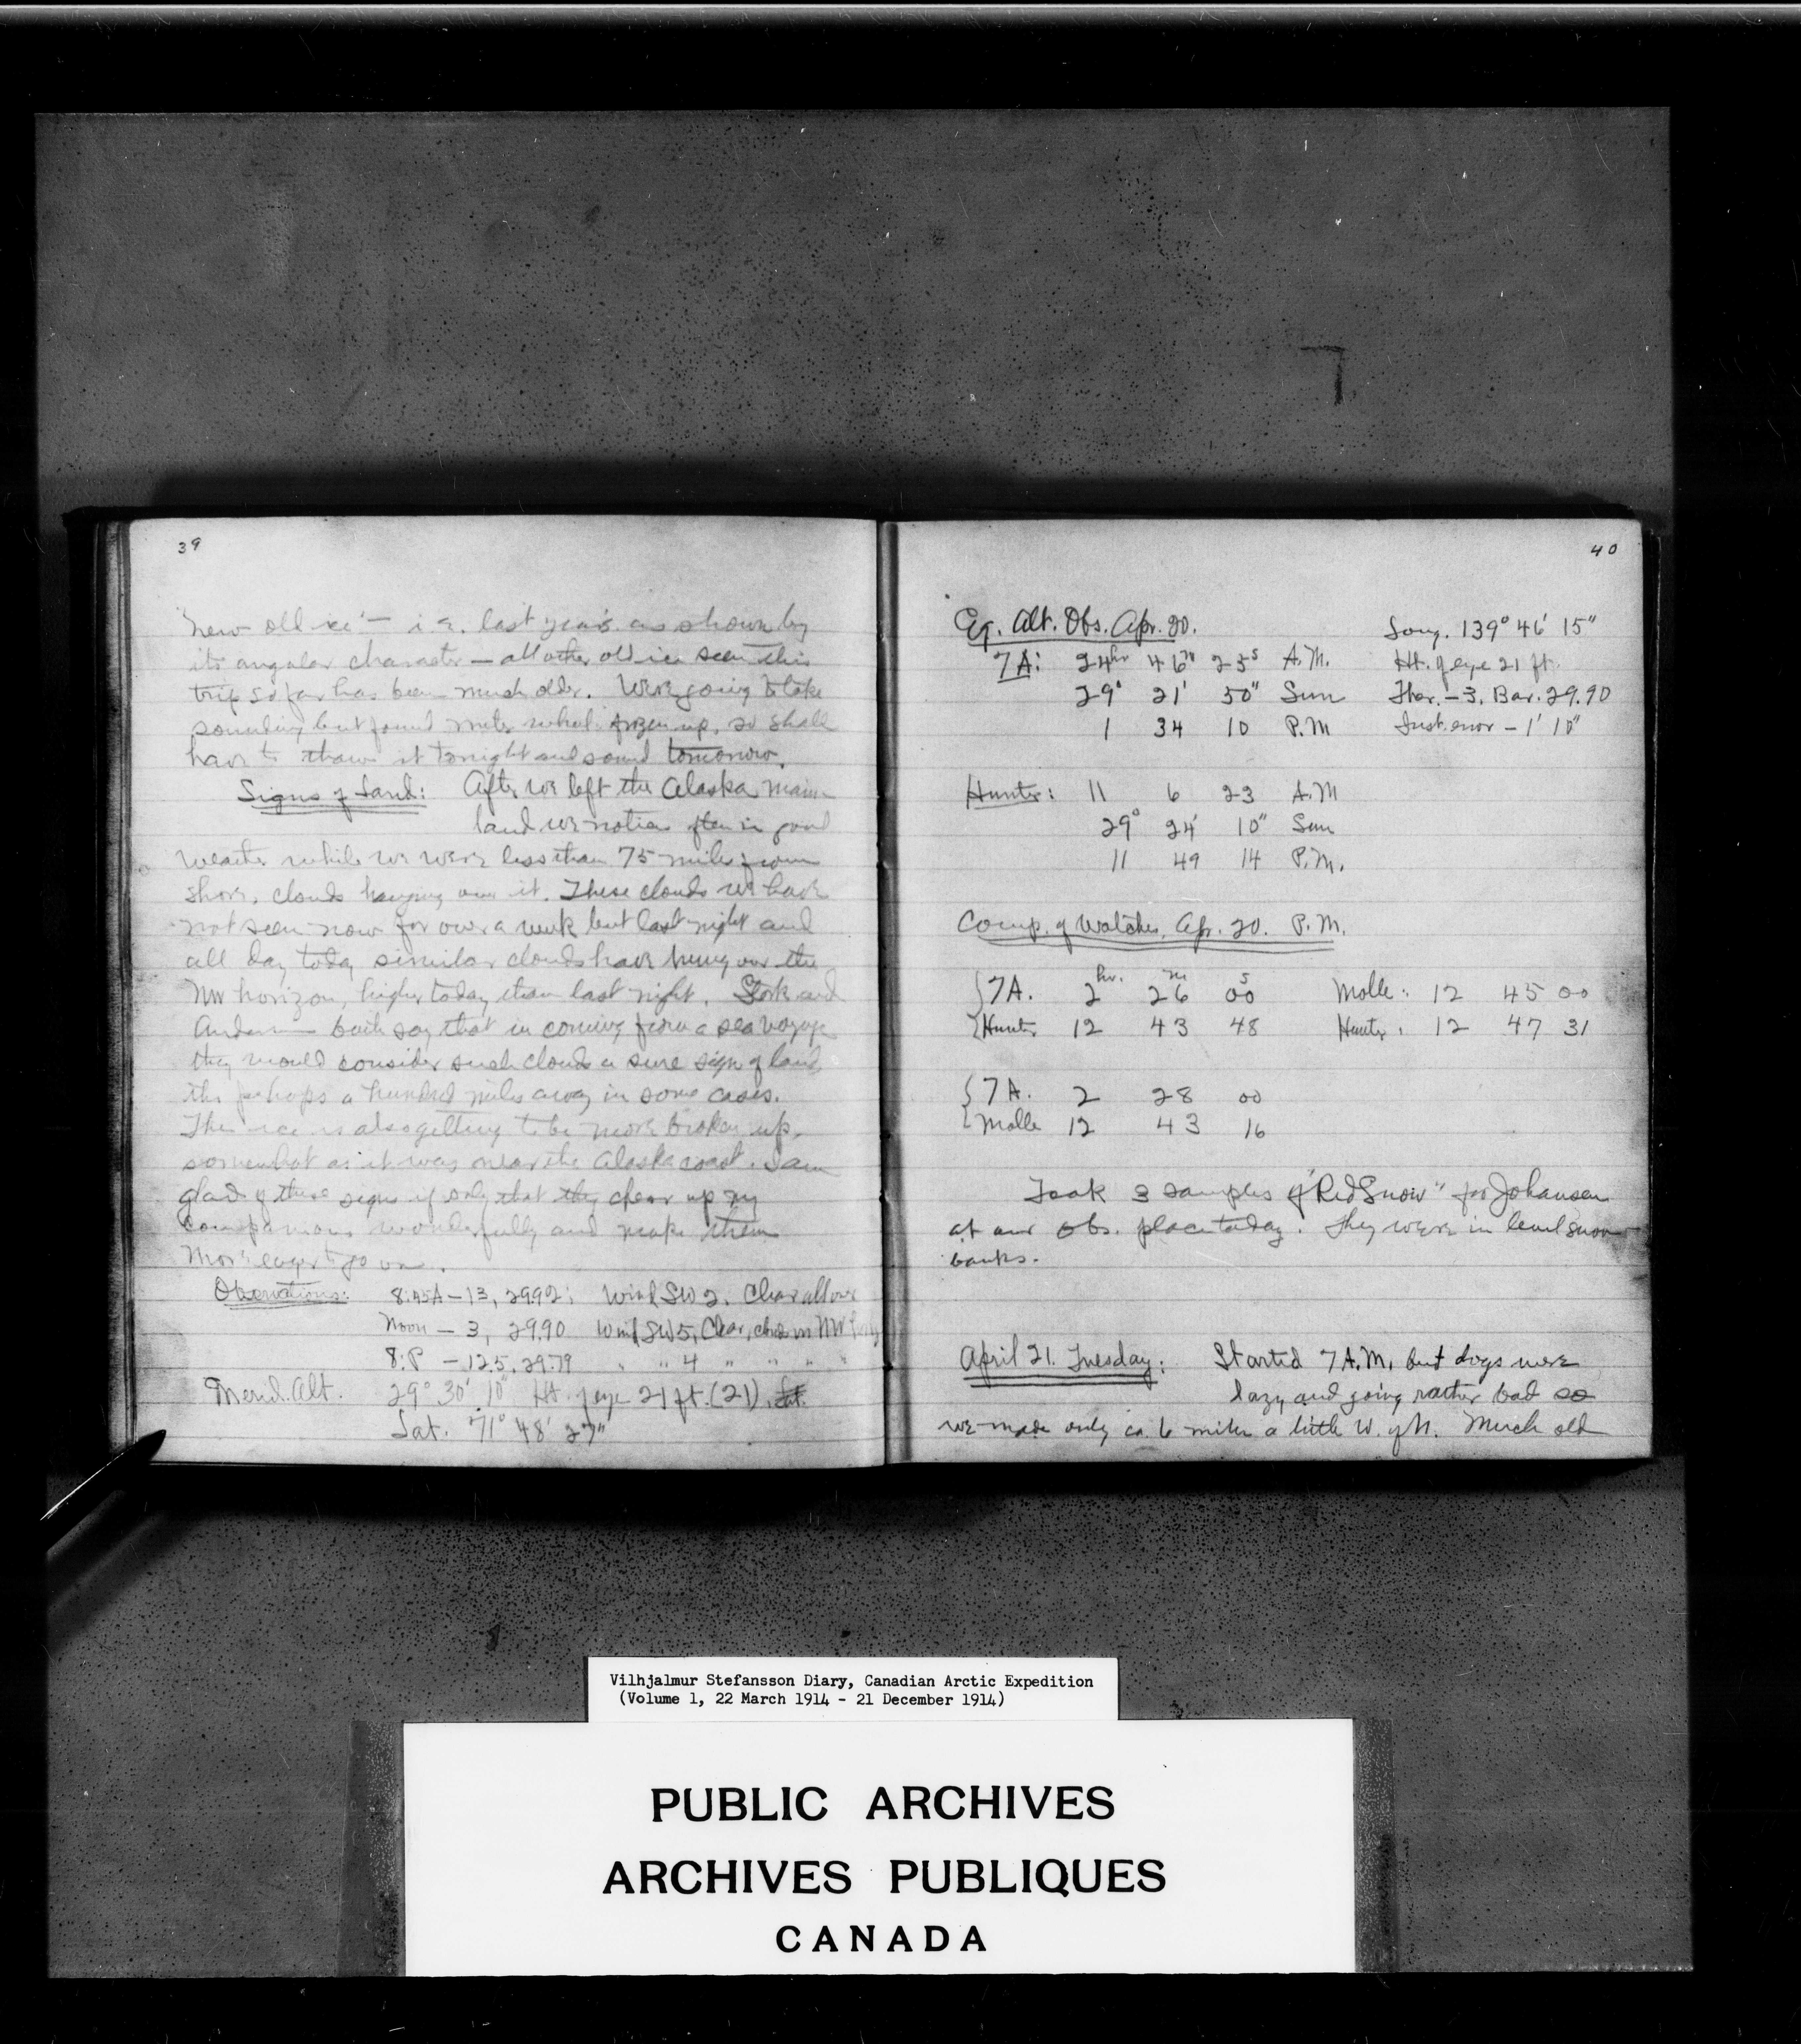 39
new old ice' — i.e. last year's as shown by
its angular character — all other old ice seen this
trip so far has been much older. Were going to take
sounding but found meter wheel frozen up, so shall
have to thaw it tonight and sound tomorrow.
Signs of Land: After we left the Alaska main-
land we notice often in good
weather while we were less than 75 miles from
shore, clouds hanging over it. These clouds we have
not seen now for over a week but last night and
all day today similar clouds have hung over the
NW horizon, higher today than last night. Stork and
Andersen both say that in coming from a sea voyage
they would consider such clouds a sure sign of land,
tho perhaps a hundred miles away in some cases.
The ice is also getting to be more broken up,
somewhat as it was near the Alaska coast. I am
glad of these signs if only that they cheer up my
companions wonderfully and make them
more eager to go on.
Observations: 8:45A – 13, 29.92; Wind SW 2. Clear all over
Noon – 3, 29.90 Wind SW 5, Clear, clouds in NW
8:P – 12.5, 29.79 " " 4 " " " "
Merid. Alt. 29° 30' 10" Ht. of eye 21 ft. (21). Lat.
Lat. 71° 48' 27"
40
Eq. Alt. Obs. Apr. 20. Long. 139° 46' 15"
7A: 24hr 46m 23s A.M. Ht. of eye 21 ft.
29° 21' 50" Sun Ther. –3. Bar. 29.90
1 34 10 P.M Inst. error – 1' 10"
Hunter: 11 6 23 A.M
29° 24' 10" Sun
11 49 14 P.M.
Comp. of Watches, Apr. 20. P.M.
{7A. 2hr. 26m 00s Molle: 12 45 00
{Hunter 12 43 48 Hunter: 12 47 31
{7A. 2 28 00
{Molle 12 43 16
Took 3 samples of "Red Snow" for Johansen
at our obs. place today. They were in level snow
banks.
April 21. Tuesday: Started 7 A.M. but dogs were
lazy and going rather bad so
we made only ca. 6 miles a little W. of N. Much old
Vilhjalmur Stefansson Diary, Canadian Arctic Expedition
(Volume 1, 22 March 1914 - 21 December 1914)
PUBLIC ARCHIVES
ARCHIVES PUBLIQUES
CANADA